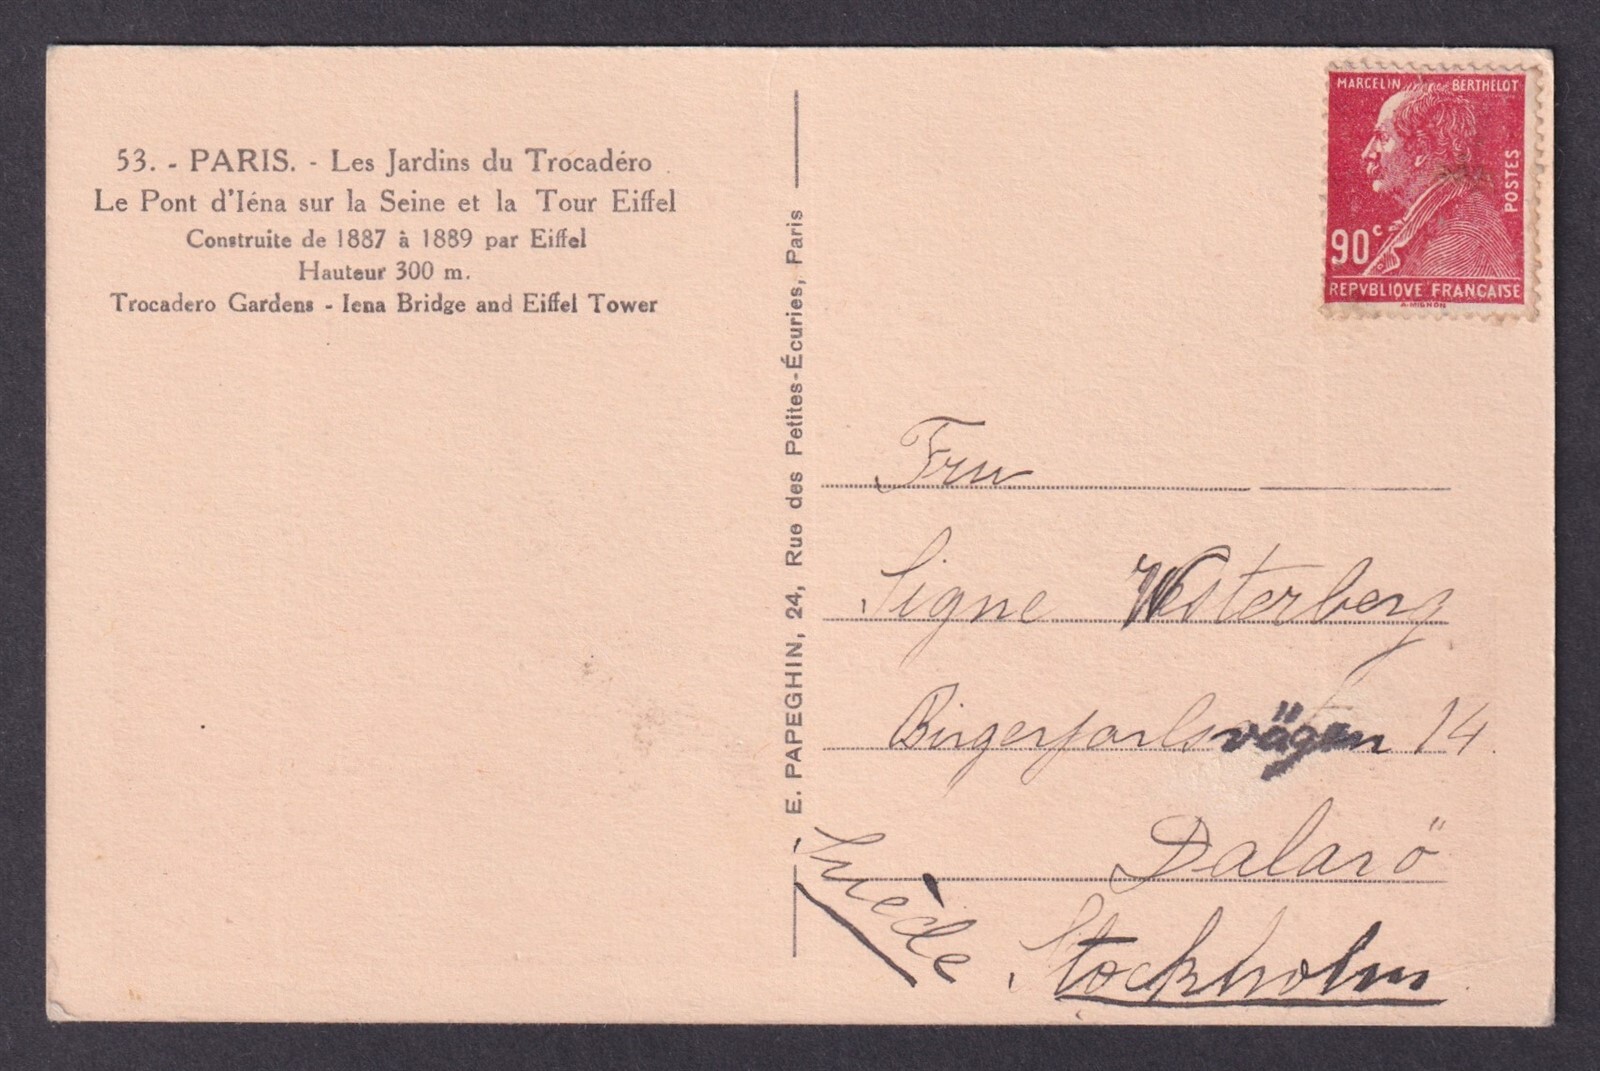 53. - PARIS. - Les Jardins du Trocadéro
Le Pont d'Iéna sur la Seine et la Tour Eiffel
Construite de 1887 à 1889 par Eiffel
Hauteur 300 m.
Trocadero Gardens - Iena Bridge and Eiffel Tower
E. PAPEGHIN, 24, Rue des Petites-Écuries, Paris
MARCELIN BERTHELOT
POSTES
90c
REPVBLIQVE FRANCAISE
A. MIGNON
Fru
Signe Westerberg
Birgerjarlsvägen 14.
Dalarö
Stockholm
Suède